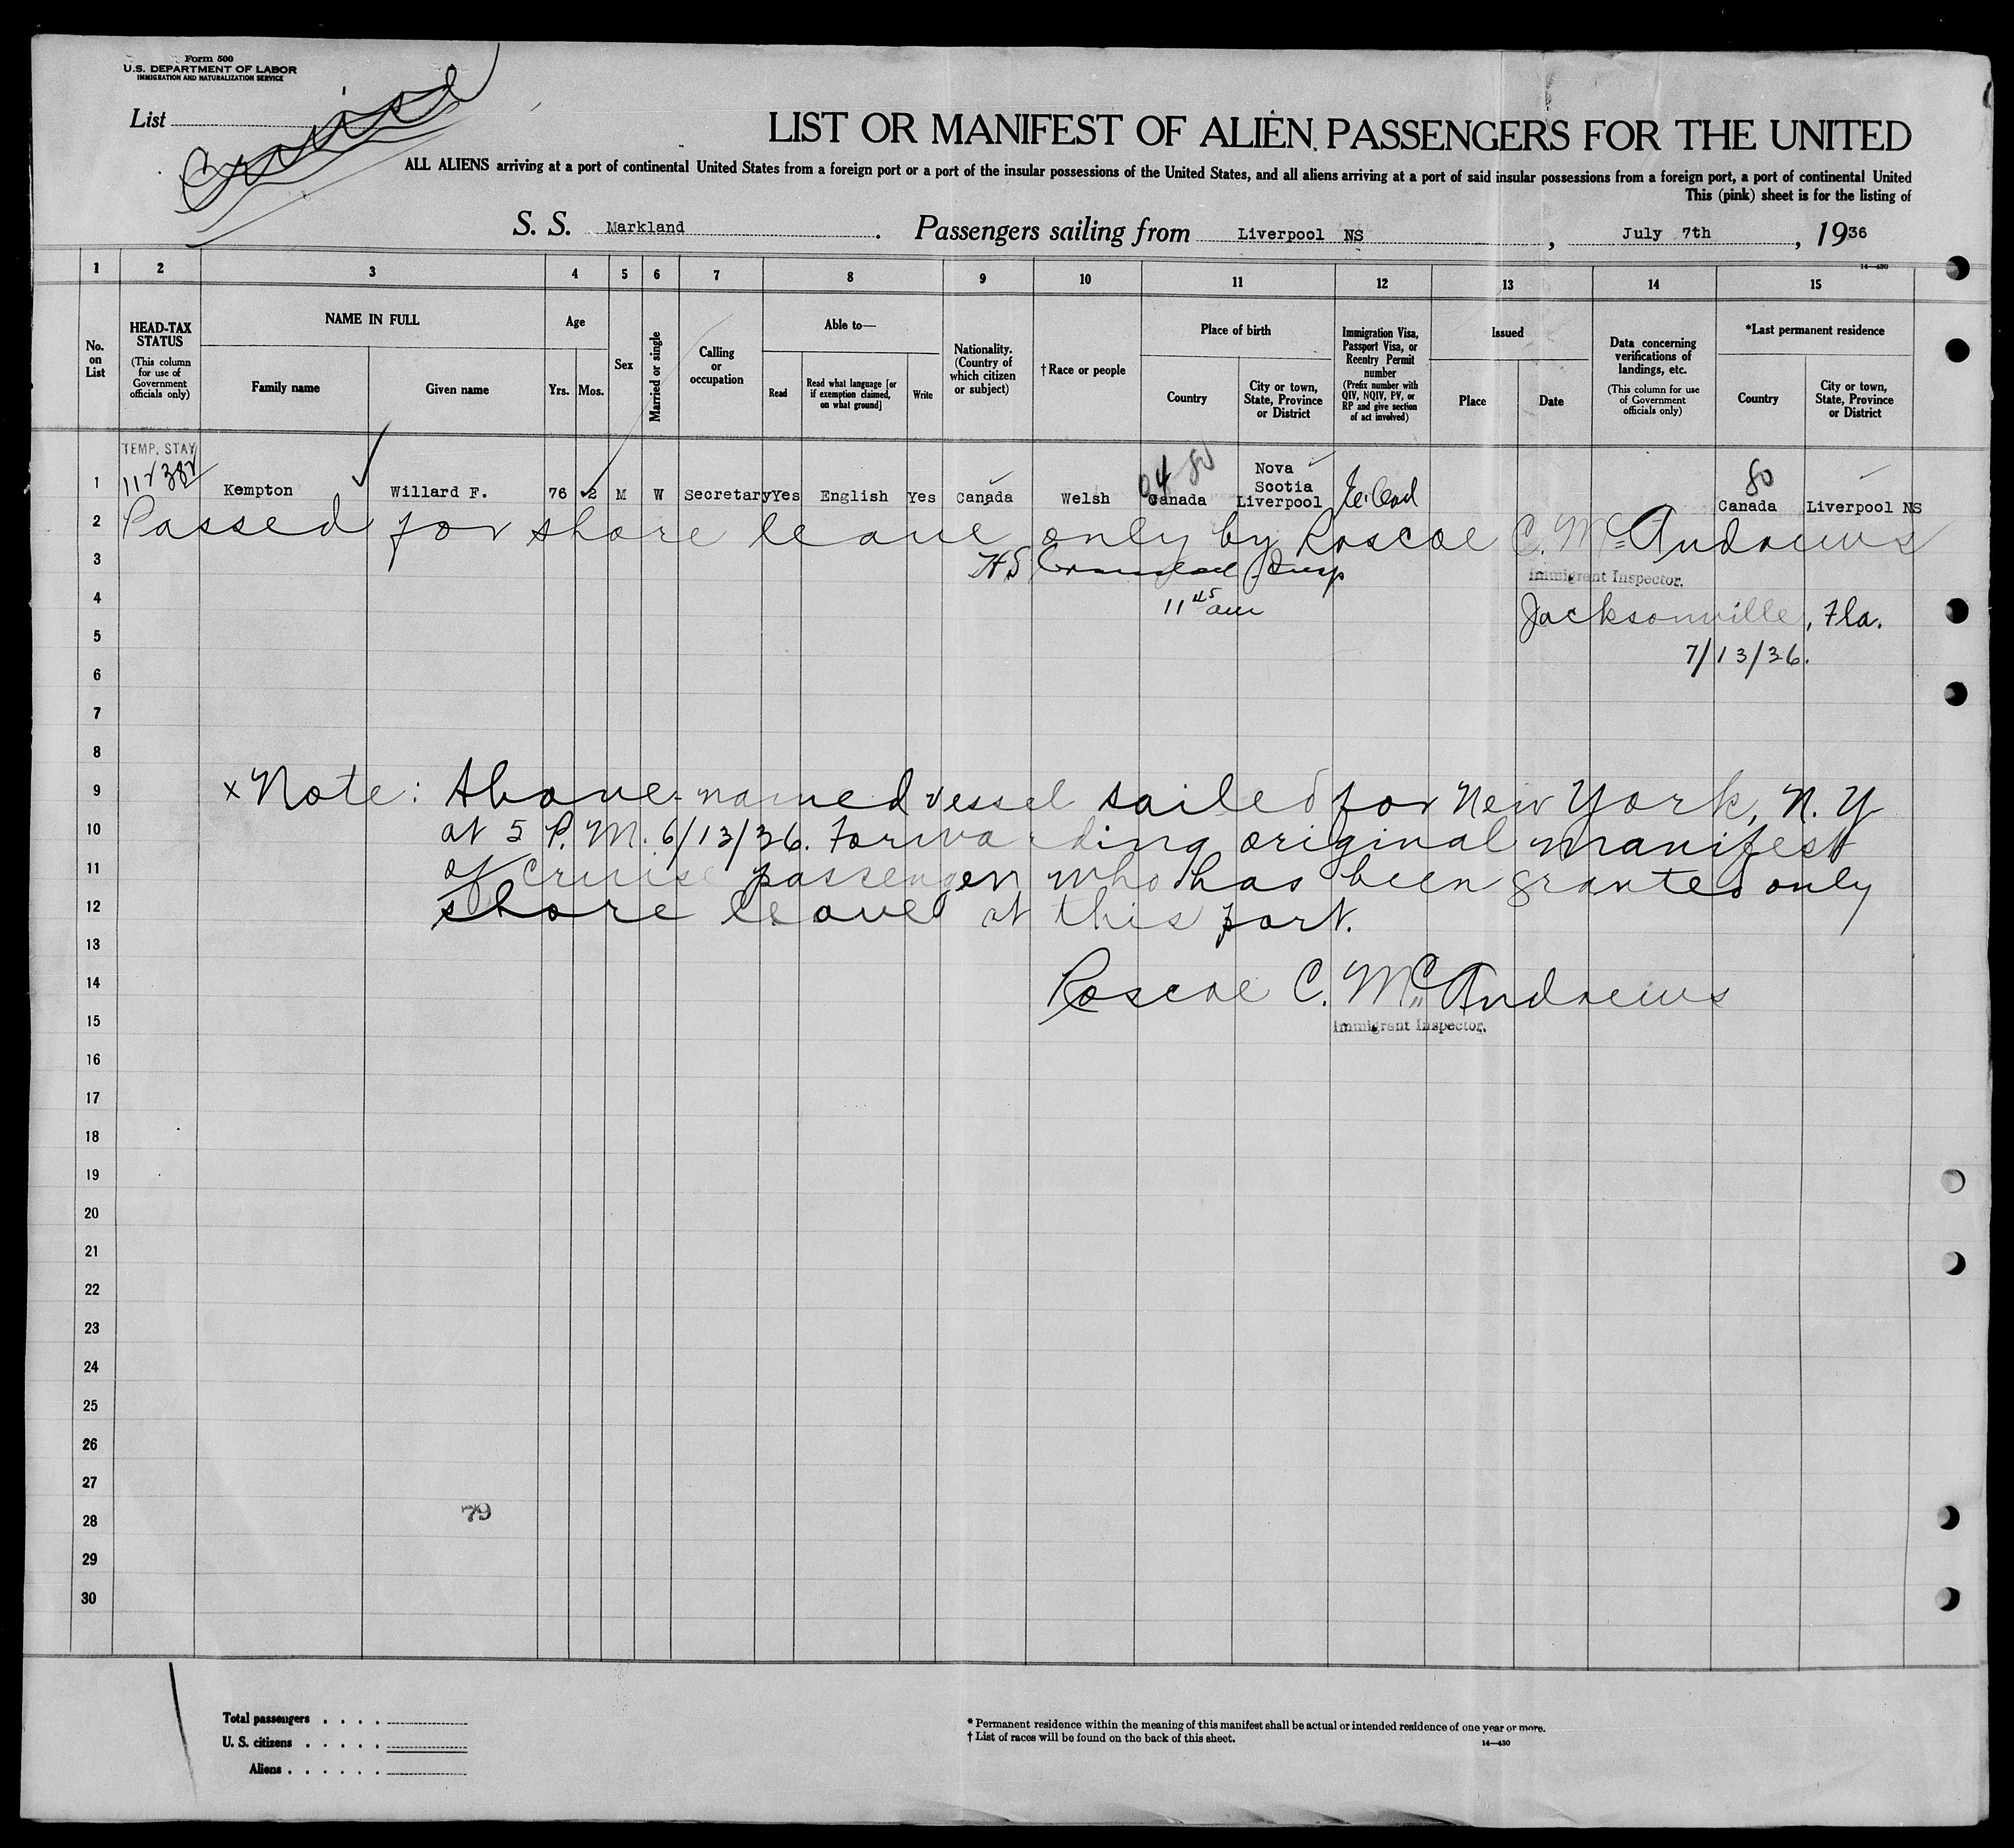 Form 500
U.S. DEPARTMENT OF LABOR
IMMIGRATION AND NATURALIZATION SERVICE
List
LIST OR MANIFEST OF ALIEN PASSENGERS FOR THE UNITED
ALL ALIENS arriving at a port of continental United States from a foreign port or a port of the insular possessions of the United States, and all aliens arriving at a port of said insular possessions from a foreign port, a port of continental United
This (pink) sheet is for the listing of
S. S. Markland. Passengers sailing from Liverpool NS, July 7th, 1936
14—430
1 2 3 4 5 6 7 8 9 10 11 12 13 14 15
No. on List
HEAD-TAX STATUS (This column for use of Government officials only)
NAME IN FULL
Family name
Given name
Age
Yrs. Mos.
Sex
Married or single
Calling or occupation
Able to—
Read
Read what language [or if exemption claimed, on what ground]
Write
Nationality. (Country of which citizen or subject)
†Race or people
Place of birth
Country
City or town, State, Province or District
Immigration Visa, Passport Visa, or Reentry Permit number (Prefix number with QIV, NQIV, PV, or RP and give section of act involved)
Issued
Place
Date
Data concerning verifications of landings, etc. (This column for use of Government officials only)
*Last permanent residence
Country
City or town, State, Province or District
TEMP. STAY
1 Kempton Willard F. 76 2 M W Secretary Yes English Yes Canada Welsh Canada Nova Scotia Liverpool 80 Canada Liverpool NS
2 Passed for shore leave only by Roscoe C. McAndrews
3 Immigrant Inspector.
4 11 45 am Jacksonville, Fla.
5 7/13/36.
6
7
8
9 x Note: Above-named vessel sailed for New York, N.Y
10 at 5 P.M. 6/13/36. Forwarding original manifest
11 of cruise passenger who has been granted only
12 shore leave at this port.
13
14 Roscoe C. McAndrews
15 Immigrant Inspector.
16
17
18
19
20
21
22
23
24
25
26
27
28 79
29
30
Total passengers . . . .
U. S. citizens . . . . .
Aliens . . . . . .
* Permanent residence within the meaning of this manifest shall be actual or intended residence of one year or more.
† List of races will be found on the back of this sheet.
14—430